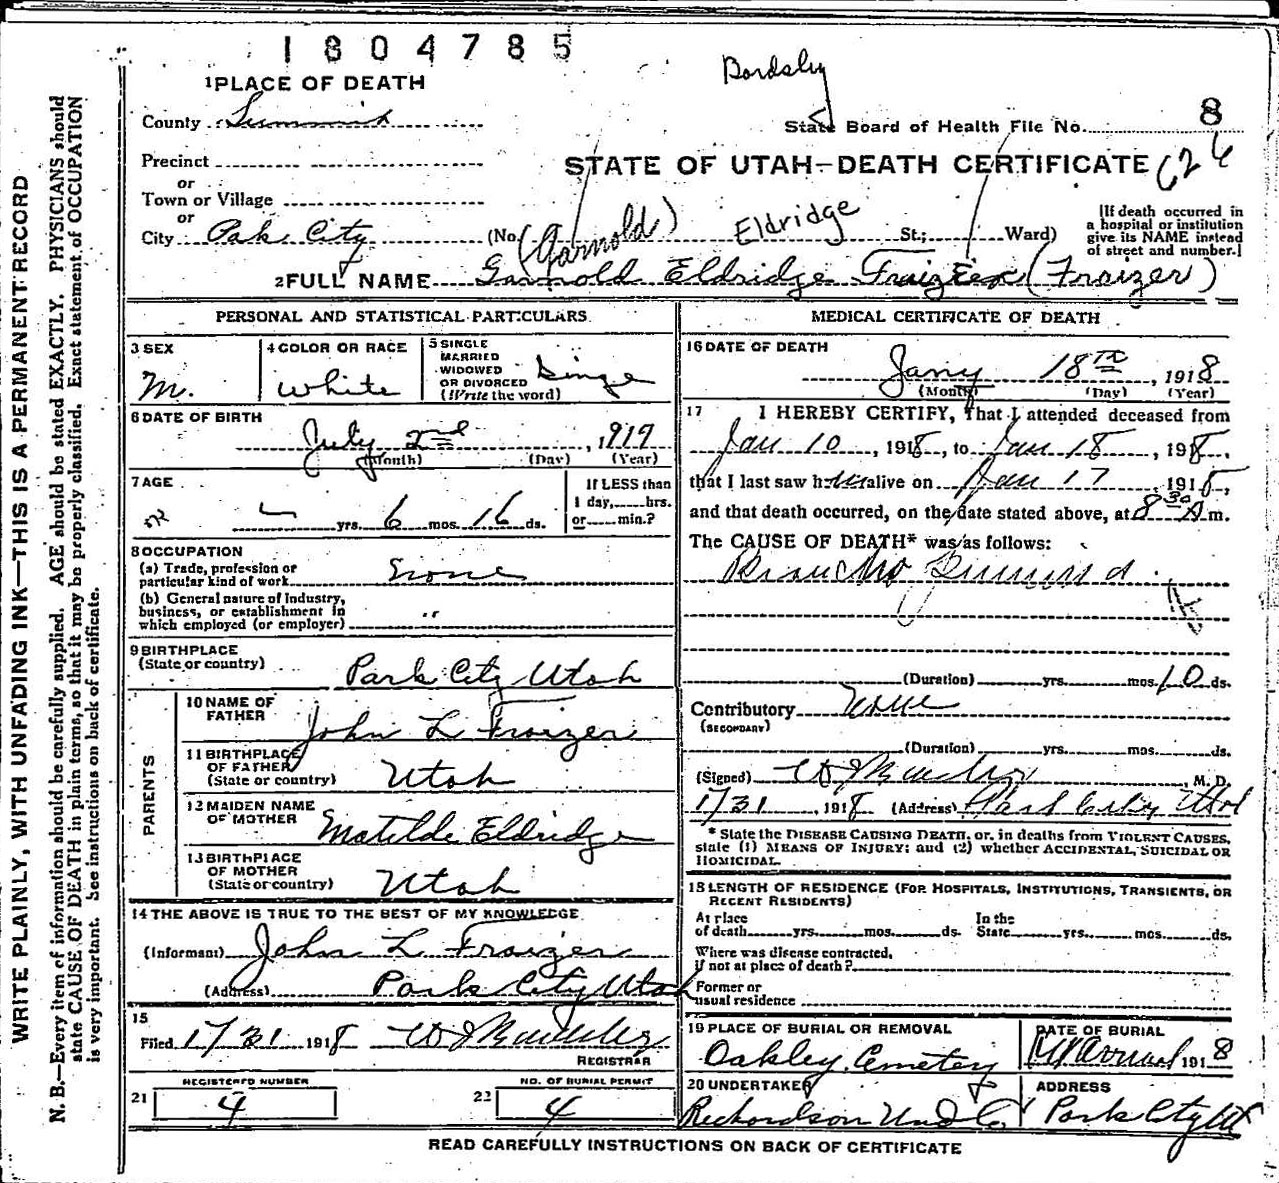 1804785
Bardsley
1 PLACE OF DEATH
County Summit
State Board of Health File No. 8
626
Precinct
or
Town or Village
or
City Park City
STATE OF UTAH—DEATH CERTIFICATE
(No. (Garnold) Eldridge St.; Ward)
[If death occurred in a hospital or institution give its NAME instead of street and number.]
2 FULL NAME Garnold Eldridge Fraizer (Fraizer)
PERSONAL AND STATISTICAL PARTICULARS
3 SEX
M.
4 COLOR OR RACE
White
5 SINGLE MARRIED WIDOWED OR DIVORCED
(Write the word)
Single
6 DATE OF BIRTH
July 2nd, 1917
(Month) (Day) (Year)
7 AGE
— yrs. 6 mos. 16 ds.
If LESS than
1 day, hrs.
or min.?
8 OCCUPATION
(a) Trade, profession or
particular kind of work None
(b) General nature of Industry,
business, or establishment in
which employed (or employer) "
9 BIRTHPLACE
(State or country) Park City Utah
PARENTS
10 NAME OF
FATHER John L Fraizer
11 BIRTHPLACE
OF FATHER
(State or country) Utah
12 MAIDEN NAME
OF MOTHER Matilde Eldridge
13 BIRTHPLACE
OF MOTHER
(State or country) Utah
14 THE ABOVE IS TRUE TO THE BEST OF MY KNOWLEDGE
(Informant) John L Fraizer
(Address) Park City Utah
15
Filed 1/31 1918
REGISTRAR
REGISTERED NUMBER
21 4
NO. OF BURIAL PERMIT
22 4
MEDICAL CERTIFICATE OF DEATH
16 DATE OF DEATH
Jany 18th, 1918
(Month) (Day) (Year)
17 I HEREBY CERTIFY, That I attended deceased from
Jan 10, 1918, to Jan 18, 1918,
that I last saw him alive on Jan 17, 1918,
and that death occurred, on the date stated above, at 8 30 A m.
The CAUSE OF DEATH* was as follows:
Broncho Pneumonia
(Duration) yrs. mos. 10 ds.
Contributory None
(SECONDARY)
(Duration) yrs. mos. ds.
(Signed) M. D.
1/31, 1918 (Address) Park City Utah
* State the DISEASE CAUSING DEATH, or, in deaths from VIOLENT CAUSES,
state (1) MEANS OF INJURY; and (2) whether ACCIDENTAL, SUICIDAL OR
HOMICIDAL.
18 LENGTH OF RESIDENCE (FOR HOSPITALS, INSTITUTIONS, TRANSIENTS, OR
RECENT RESIDENTS)
At place
of death yrs. mos. ds.
In the
State yrs. mos. ds.
Where was disease contracted,
if not at place of death?
Former or
usual residence
19 PLACE OF BURIAL OR REMOVAL
Oakley Cemetery
DATE OF BURIAL
1918
20 UNDERTAKER
Richardson Und Co
ADDRESS
Park City Ut
READ CAREFULLY INSTRUCTIONS ON BACK OF CERTIFICATE
WRITE PLAINLY, WITH UNFADING INK—THIS IS A PERMANENT RECORD
N. B.—Every item of information should be carefully supplied. AGE should be stated EXACTLY. PHYSICIANS should
state CAUSE OF DEATH in plain terms, so that it may be properly classified. Exact statement of OCCUPATION
is very important. See instructions on back of certificate.